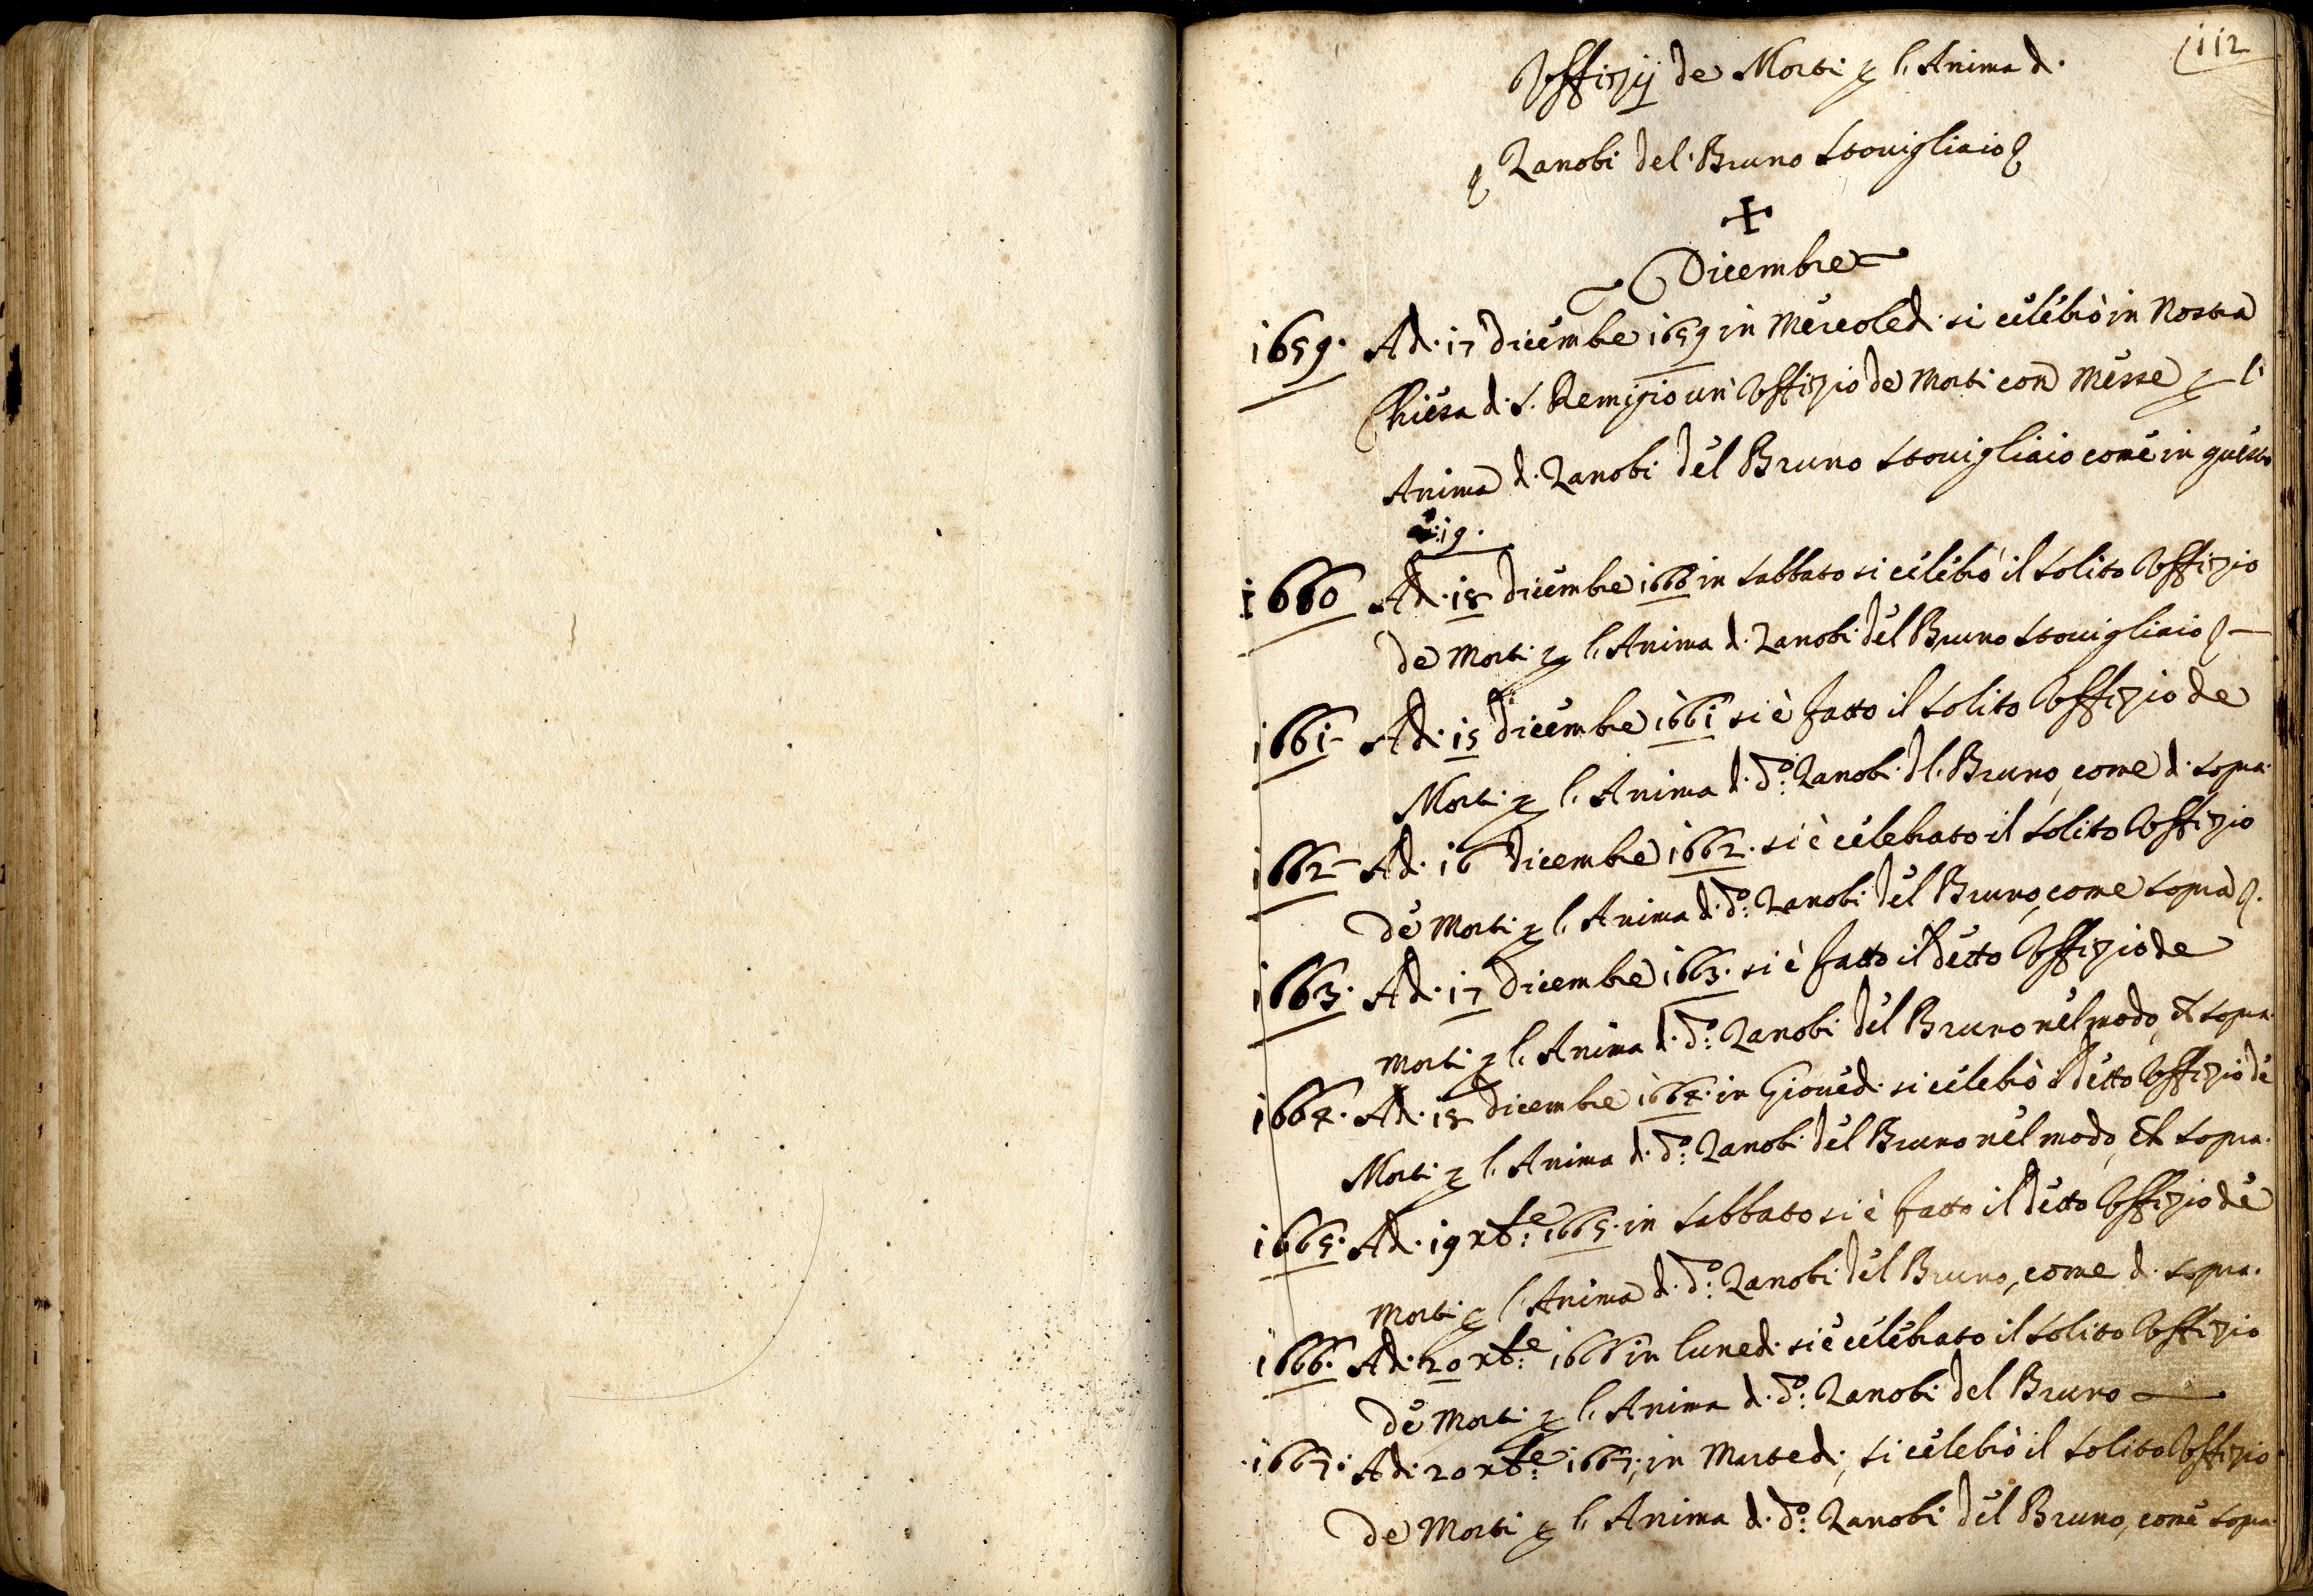 112
Offizij de Morti p l'Anima di
Zanobi del Bruno Stovigliaio
Dicembre
1659. Adi 17 Dicembre 1659 in Mercoledi si celebrò in Nostra
Chiesa di S. Remigio un Offizio de Morti con Messe p l'
Anima di Zanobi del Bruno Stovigliaio come in questo
19.
1660 Adi 18 Dicembre 1660 in Sabbato si celebrò il Solito Offizio
de Morti p l'Anima di Zanobi del Bruno Stovigliaio
1661 Adi 15 Dicembre 1661 si è fatto il Solito Offizio de
Morti p l'Anima di do: Zanobi del Bruno, come di Sopra.
1662 Adi 16 Dicembre 1662. si è celebrato il Solito Offizio
de Morti p l'Anima di do: Zanobi del Bruno, come Sopra.
1663. Adi 17 Dicembre 1663. si è fatto il detto Offizio de
Morti p l'Anima di do: Zanobi del Bruno nel modo, et Sopra.
1664. Adi 18 Dicembre 1664. in Giovedi si celebrò il detto Offizio de
Morti p l'Anima di do: Zanobi del Bruno nel modo, et Sopra.
1665. Adi 19 Xbe: 1665. in Sabbato si è fatto il detto Offizio de
Morti p l'Anima di do: Zanobi del Bruno, come di Sopra.
1666. Adi 20 Xbe: 1666 in Lunedi si è celebrato il Solito Offizio
de Morti p l'Anima di do: Zanobi del Bruno
1667. Adi 20 Xbe: 1667, in Martedi, si celebrò il Solito Offizio
de Morti p l'Anima di do: Zanobi del Bruno, come Sopra